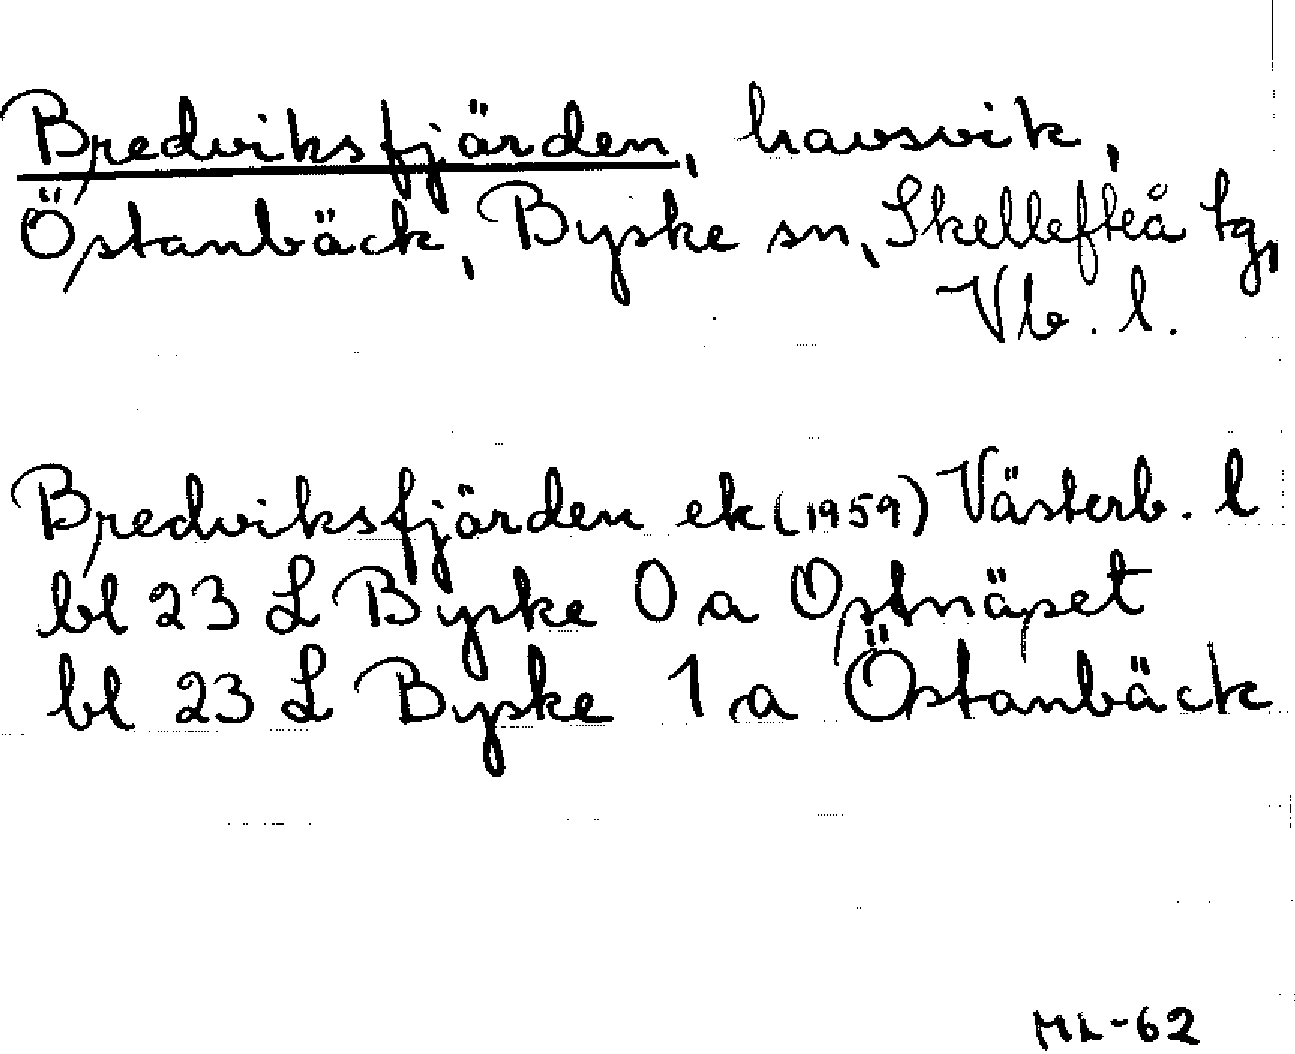 Bredviksfjärden, havsvik,
Östanbäck, Byske sn, Skellefteå tg,
Vb. l.
Bredviksfjärden ek (1959) Västerb. l
bl 23 L Byske 0 a Ostnäset
bl 23 L Byske 1 a Östanbäck
ML-62